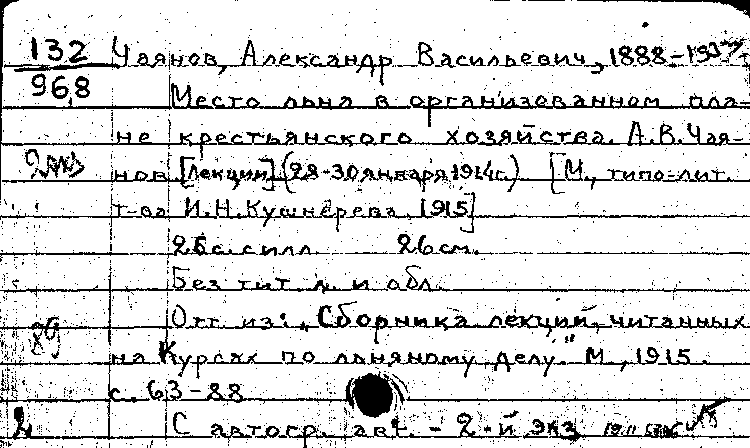 132 Чаянов, Александр Васильевич, 1888-1937.
968 Место льна в организованном пла-
не крестьянского хозяйства. А.В. Чая-
2экз нов [Лекции] (28-30 января 1914г.) [М., типо-лит.
т-ва И.Н. Кушнерева, 1915]
26 с. с илл. 26 см.
Без тит. л. и обл.
89 Отт. из: „Сборника лекций, читанных
на Курсах по льняному делу." М., 1915.
с. 63-88
2 С автогр. авт. - 2-й экз